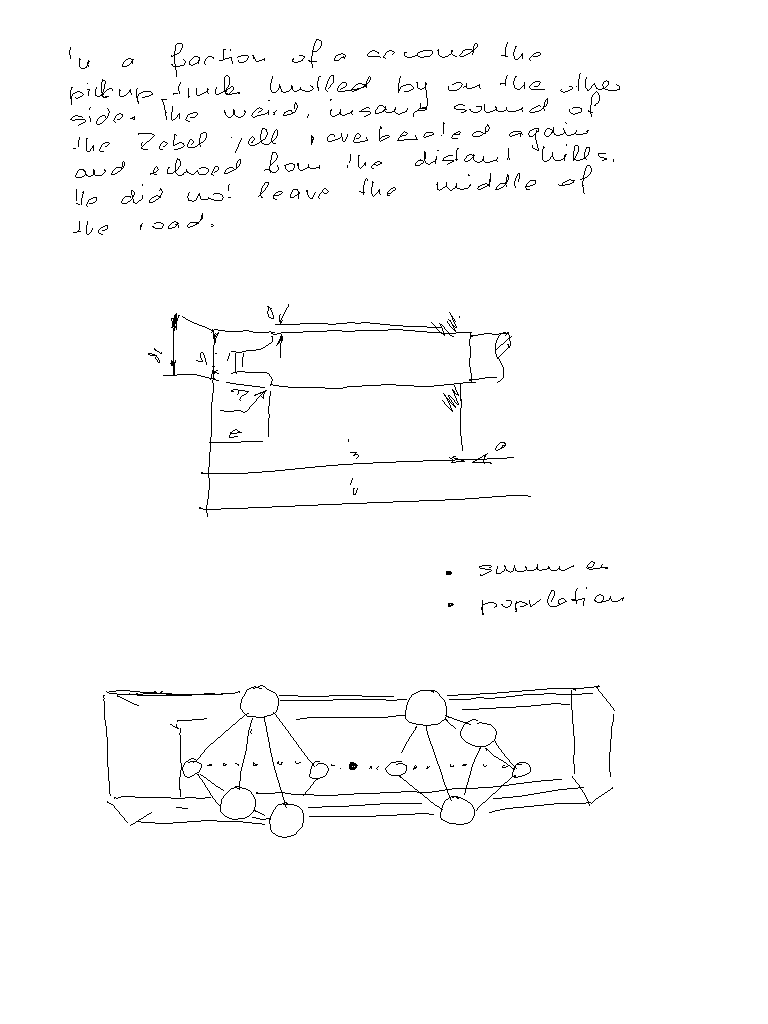 In a fraction of a second the
pickup truck hurtled by on the other
side. The weird, insane sound of
the Rebel yell reverberated again
and echoed from the distant hills.
He did not leave the middle of
the road.
e
a
summer
population